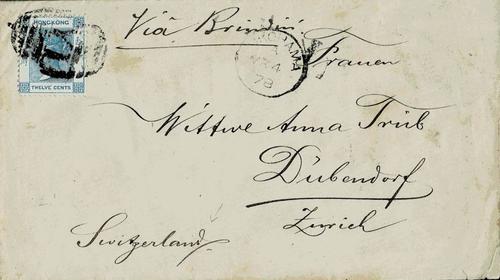 HONGKONG
TWELVE CENTS
Viâ Brindisi
Frauen
Wittwe Anna Trüb
Dübendorf
Zurich
Switzerland